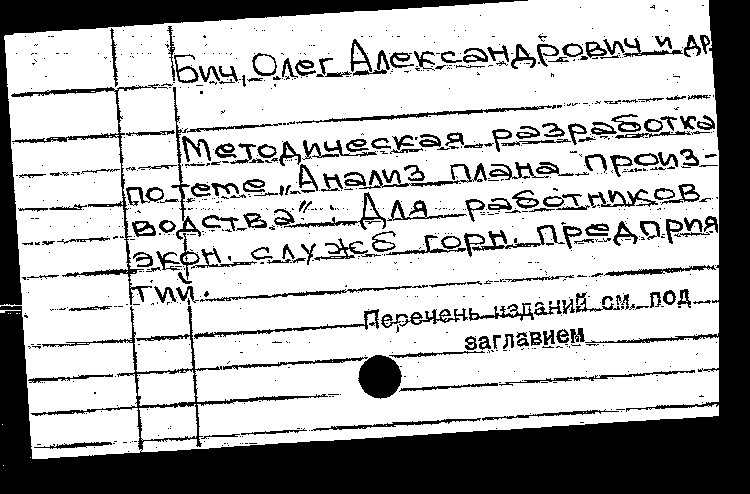 Бич, Олег Александрович и др
Методическая разработка
по теме „Анализ плана произ-
водства“: Для работников
экон. служб горн. предприя
тий.
Перечень изданий см. под
заглавием